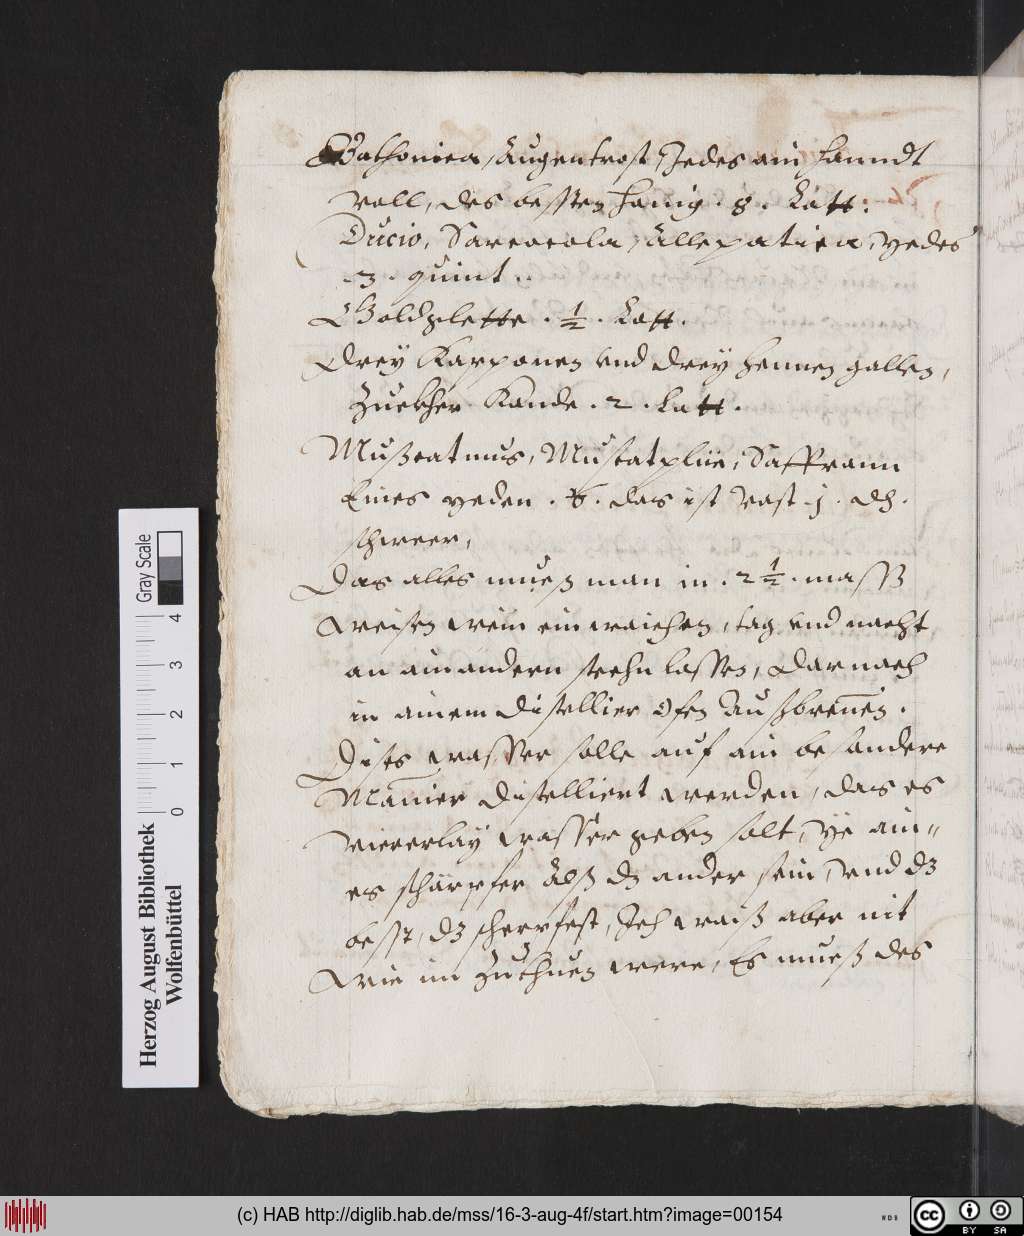 Bathonica, Augentrost, Jedes ain handt
voll, des bessten honig . 8 . Lott.
Ducio, Sarcocola, Allepatica, yedes
.3. quint.
Goldglette . 1/2 . Lott.
Drey Kapponen vnd drey hennen gallen,
Zuckher Kande . 2 . Lott.
Mußcatnus, Muscatplüe, Saffrann
Eines yeden . das ist vast .j. 
schweer,
Das alles mueß man in . 2 1/2 . mass
weisen wein ein waichen, tag vnd nacht
an ainandern stehn lassen, darnach
in ainem Distellier Ofen Außbrenen.
Dises wasser solle auf ain besondere
Manier distelliert werden, das es
viererlay wasser geben solt, ye ain-
es schärpfer Alß dz ander sein, vnd dz
besst, dz scherpfest, Ich waiß aber nit
wie im zuthuen were, Es mueß des
Gray Scale
0 1 2 3 4
Herzog August Bibliothek
Wolfenbüttel
(c) HAB http://diglib.hab.de/mss/16-3-aug-4f/start.htm?image=00154
WDB
cc BY SA